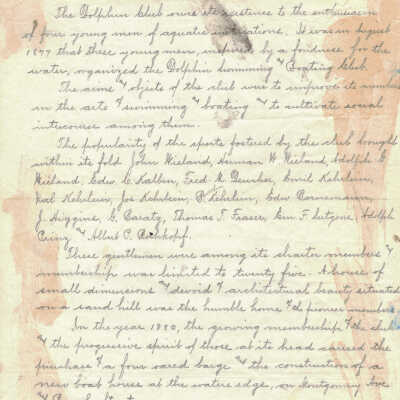 The Dolphin Club owes its existence to the enthusiasm
of four young men of aquatic inclinations. It was in August
1877 that these young men, inspired by a fondness for the
water, organized the Dolphin Swimming & Boating Club.
The aims & objects of the club were to improve its members
in the arts of swimming & boating & to cultivate social
intercourse among them.
The popularity of the sports fostered by the club brought
within its fold John Wieland, Herman W. Wieland, Adolph G.
Wieland, Edw. C. Kalben, Fred M. Emil Kehrlein,
Val Kehrlein, Jos Kehrlein, O Kehrlein, Edw
J. Higgins, G. Thomas T. Fraser, Adolph
& Albert C.
These gentlemen were among its charter members &
membership was limited to twenty five. A house of
small dimensions & devoid of architectural beauty situated
on a sand hill was the humble home of the pioneer members.
In the year 1880, the growing membership of the club
& the progressive spirit of those at its head caused the
purchase of a four oared barge and the construction of a
new boat house at the waters edge, on Montgomery Ave